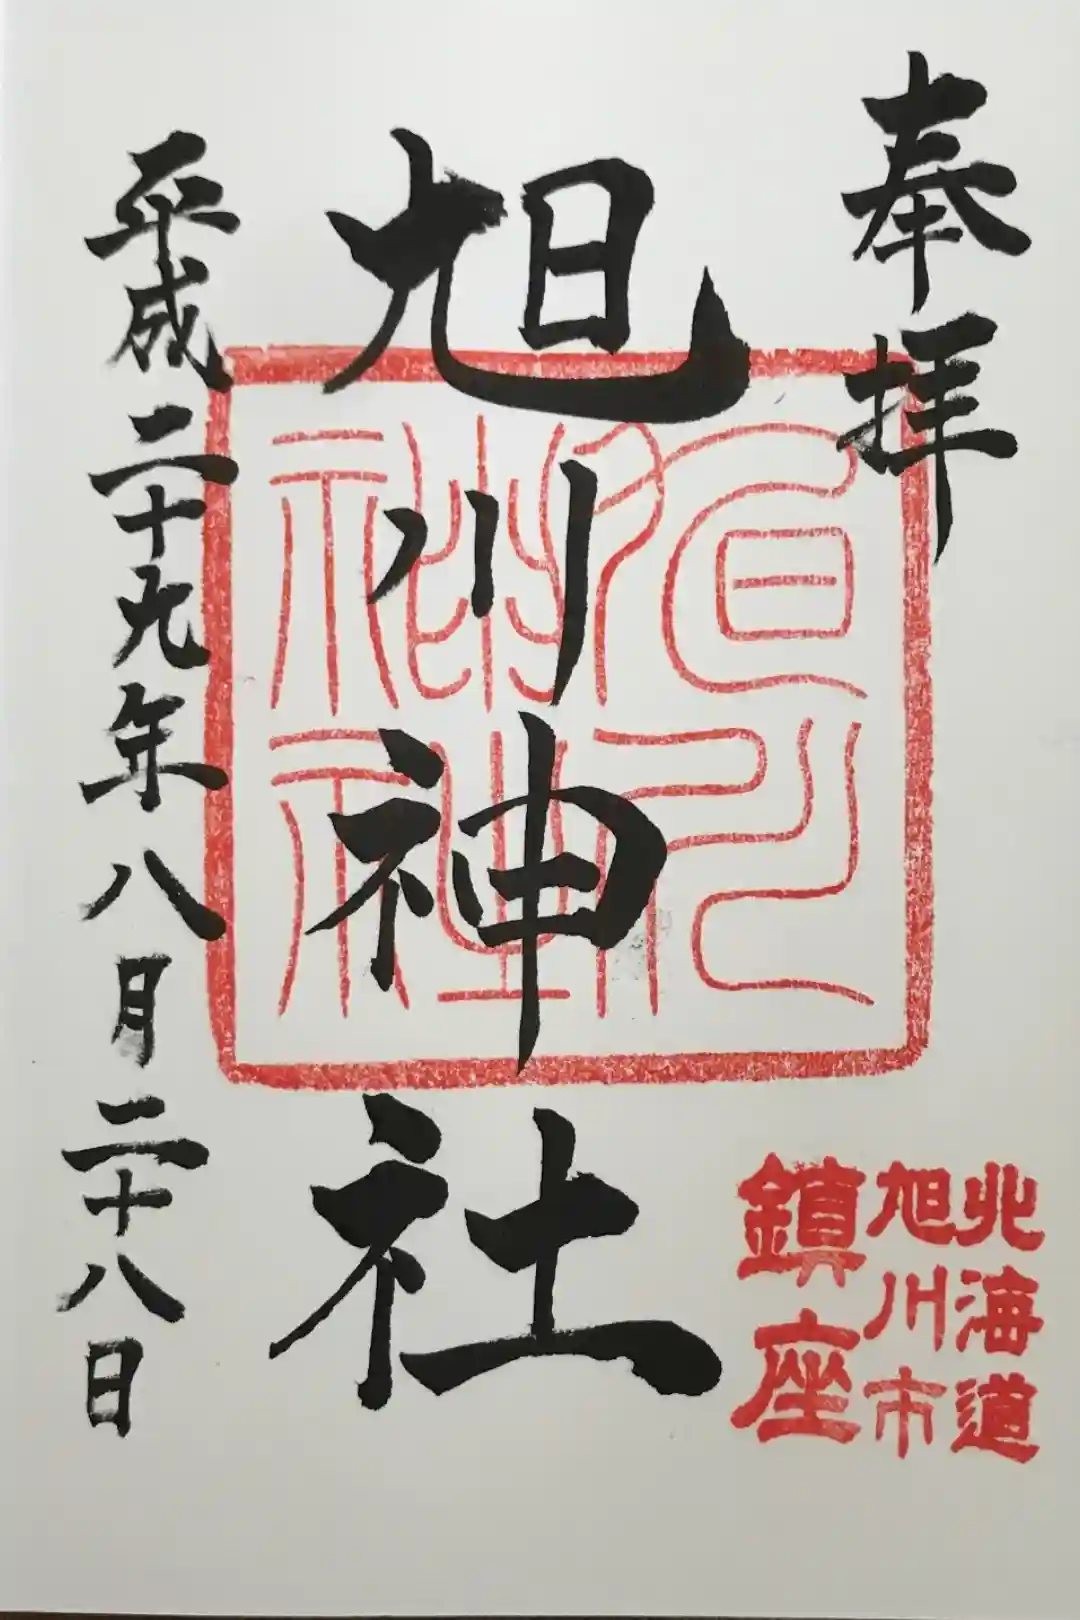 奉拝
旭川神社
旭川神社
平成二十九年八月二十八日
北海道
旭川市
鎮座